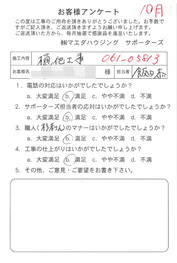 10月
お客様アンケート
この度は工事のご用命を頂きありがとうございました。お手数で
すがご記入頂き、ご返送頂きますようお願い申し上げます。
ご返送頂いた方から、毎月抽選で感謝品を進呈いたします。
㈱マエダハウジング サポーターズ
施工内容 樋、他工事 061-0581/3
お客様名 様 担当者 飯田
1．電話の対応はいかがでしたでしょうか？
a. 大変満足 b. 満足 c. やや不満 d. 不満
2．サポーターズ担当者の応対はいかがでしたでしょうか？
a. 大変満足 b. 満足 c. やや不満 d. 不満
3．職人(杉本さん)のマナーはいかがでしたでしょうか？
a. 大変満足 b. 満足 c. やや不満 d. 不満
4．工事の仕上がりはいかがでしたでしょうか？
a. 大変満足 b. 満足 c. やや不満 d. 不満
5．その他、ご意見・ご要望をお書き下さい。